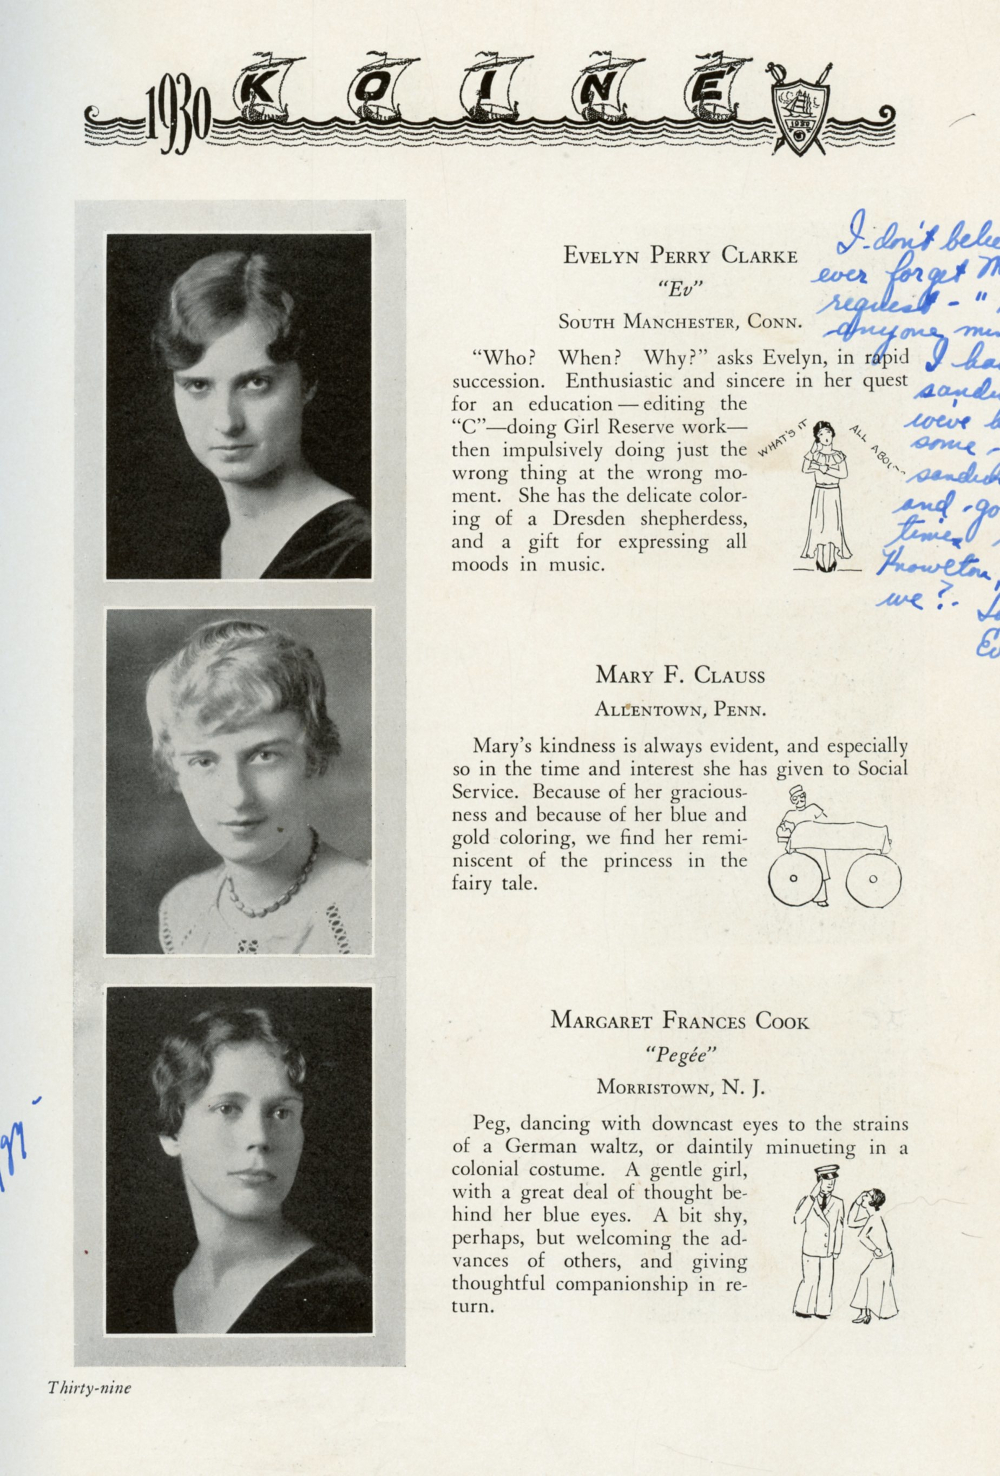 1930 KOINE
1930
EVELYN PERRY CLARKE
"Ev"
SOUTH MANCHESTER, CONN.
"Who? When? Why?" asks Evelyn, in rapid
succession. Enthusiastic and sincere in her quest
for an education—editing the
"C"—doing Girl Reserve work—
then impulsively doing just the
wrong thing at the wrong mo-
ment. She has the delicate color-
ing of a Dresden shepherdess,
and a gift for expressing all
moods in music.
WHAT'S IT
ALL ABOU
I don't belie
ever forget M
request - "
anyone
I ha
sandw
we've b
some -
sandwi
and - go
times
Knowlton,
we? -
Ev
MARY F. CLAUSS
ALLENTOWN, PENN.
Mary's kindness is always evident, and especially
so in the time and interest she has given to Social
Service. Because of her gracious-
ness and because of her blue and
gold coloring, we find her remi-
niscent of the princess in the
fairy tale.
MARGARET FRANCES COOK
"Pegée"
MORRISTOWN, N. J.
Peg, dancing with downcast eyes to the strains
of a German waltz, or daintily minueting in a
colonial costume. A gentle girl,
with a great deal of thought be-
hind her blue eyes. A bit shy,
perhaps, but welcoming the ad-
vances of others, and giving
thoughtful companionship in re-
turn.
Thirty-nine